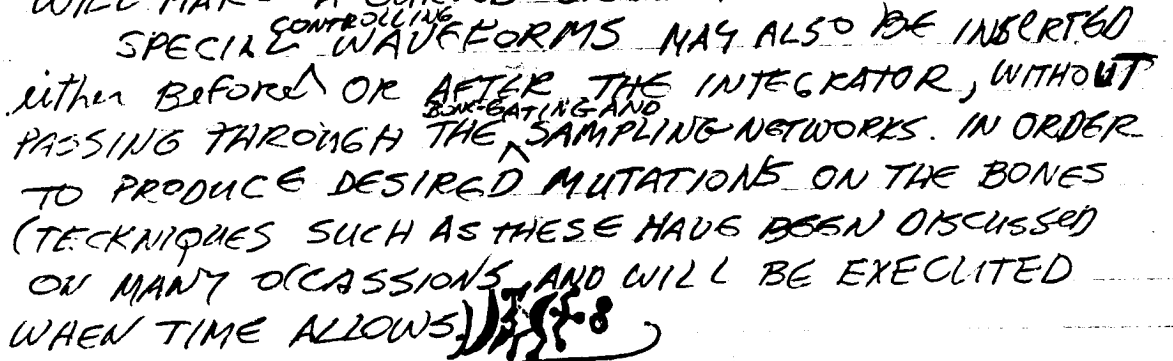 WILL MAKE A
CONTROLLING
SPECIAL WAVEFORMS MAY ALSO BE INSERTED
either Before OR AFTER THE INTEGRATOR, WITHOUT
BONE-GATING AND
PASSING THROUGH THE ^ SAMPLING NETWORKS. IN ORDER
TO PRODUCE DESIRED MUTATIONS ON THE BONES
(TECKNIQUES SUCH AS THESE HAVE BEEN DISCUSSED
ON MANY OCCASSIONS, AND WILL BE EXECUTED
WHEN TIME ALLOWS.)